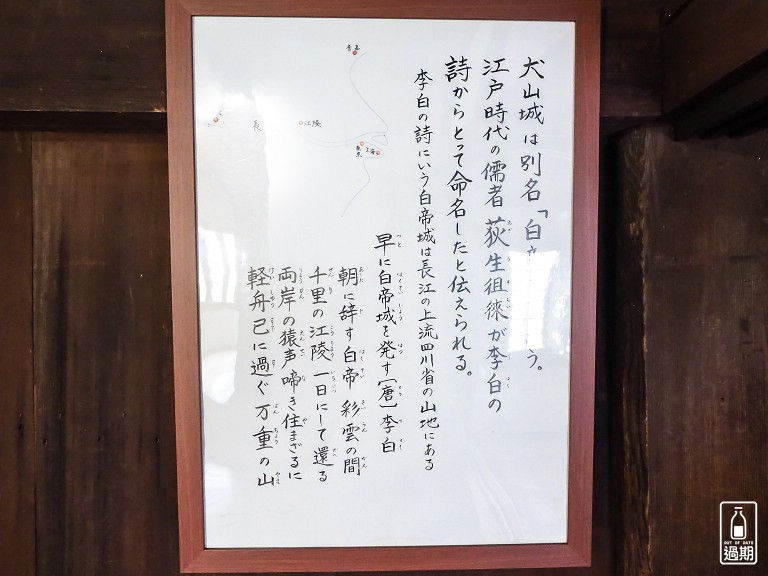 犬山城は別名「白 う。
江戸時代の儒者 荻生徂徠が李白の
詩からとって命名したと伝えられる。
李白の詩にいう白帝城は長江の上流四川省の山地にある
早に白帝城を発す〔唐〕李白
朝に辞す白帝 彩雲の間
千里の江陵 一日にして還る
両岸の猿声 啼き住まざるに
軽舟已に過ぐ 万重の山
青島
江陵
長
上海
OUT OF DATE
過期